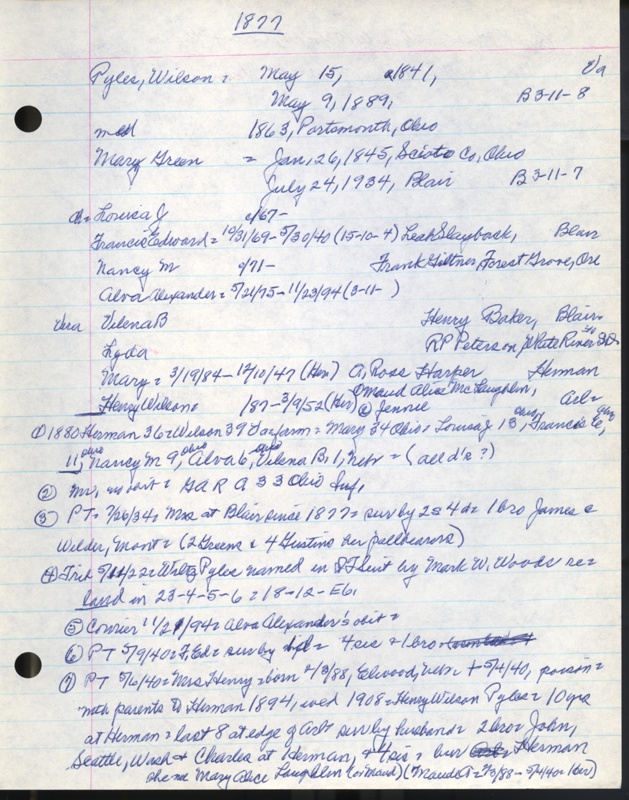 1877
Pyles, Wilson = May 15, 1841, Va
May 9, 1889, B 3-11-8
md 1863, Portsmouth, Ohio
Mary Green = Jan, 26, 1845, Scioto Co, Ohio
July 24, 1934, Blair B 3-11-7
Louisa J c/67-
Francis Edward = 10/31/69-5/30/40 (15-10-4) Leah Slayback, Blair
Nancy M c/71- Frank Giltner, Forest Grove, Ore
Alva Alexander = 5/21/75-11/23/94 (3-11- )
Vera Velena B Henry Baker, Blair
Lyda R P Peterson Platte River
Mary = 3/19/84-12/10/47 (Her) O, Ross Harper Herman
Henry Wilson = /87-3/9/52 (Her) ① Maud Alice McLaughlin, ② Jennie
① 1880 Herman 36 = Wilson 39 Va farm = Mary 34 Ohio = Louisa J 13 Ohio, Francis E,
11, Ohio Nancy M 9, Ohio Alva 6, Ohio Velena B, 1, Nebr = (all d's?)
② Mr, obit = G A R A 33 Ohio Inf,
③ PT = 7/26/34 = Mrs at Blair since 1877 = surv by 2s 4d = 1 bro James =
Wilder, Mont = (2 Greens & 4 Gustins her pallbearers)
④ Trib = Pyles named in suit by Mark W, Woods re =
land in 23-4-5-6 = 18-12-E6,
⑤ Courier 11/ /94 = Alva Alexander's obit =
⑥ PT 5/9/40 = F, Ed = surv by 4 sis = 1 bro
⑦ PT 5/16/40 = Mrs Henry = born 2/3/88, Elwood, Nebr = + 5/4/40, poison =
with parents to Herman 1894, wed 1908 = Henry Wilson Pyles = 10 yrs
at Herman = last 8 at edge of Arl = surv by husband = 2 bro = John,
Seattle, Wash & Charles at Herman, & 4 sis = bur Herman
she = Mary Alice Laughlin (or Maud) (Maude A = 2/3/88-5/4/40 = Her)